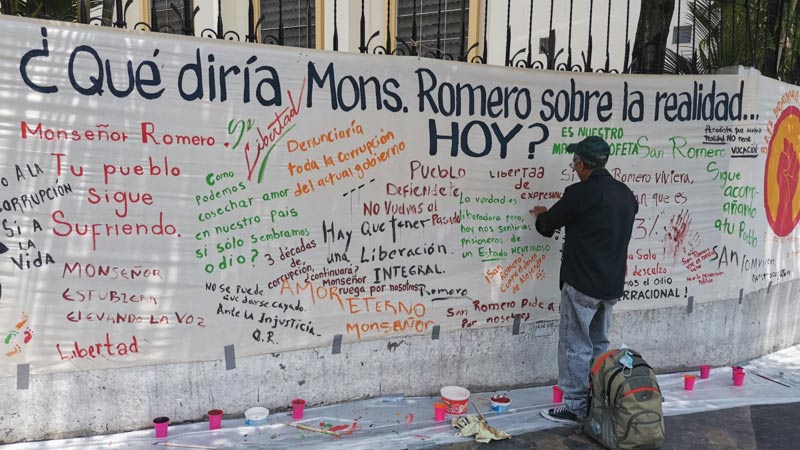 ¿Qué diría Mons. Romero sobre la realidad...
HOY?
Monseñor Romero.
Tu pueblo
sigue
Sufriendo.
O A LA
CORRUPCIÓN
SI A
LA
VIDA
MONSEÑOR
ESTUBIERA
ELEVANDO LA VOZ
Libertad
Libertad
Como
podemos
cosechar amor
en nuestro país
si sólo sembramos
odio?
Denunciaría
toda la corrupción
del actual gobierno
3 décadas de
corrupción,
¿continuará?
No se puede
quedarse callado
Ante la Injusticia
Q.R.
Hay que tener
una Liberación
INTEGRAL.
Monseñor
ruega por nosotros
Romero
AMOR ETERNO
MONSEÑOR
Pueblo
Defiendete
NO VUELVAS al
Pasado
Libertad
de
expresión
La verdad es
libertadora pero
hoy nos sentimos
prisioneros de
un Estado
San Romero
San Romero Pide a
Por nosotros
ES NUESTRO
San Romero
Si Romero viviera,
an que es
3%
a Sola
descalzo
os el odio
RRACIONAL!
Periodista que
realidad NO tiene
VOCACIÓN
Sigue
acom-
pañando
a tu
Pueblo
San